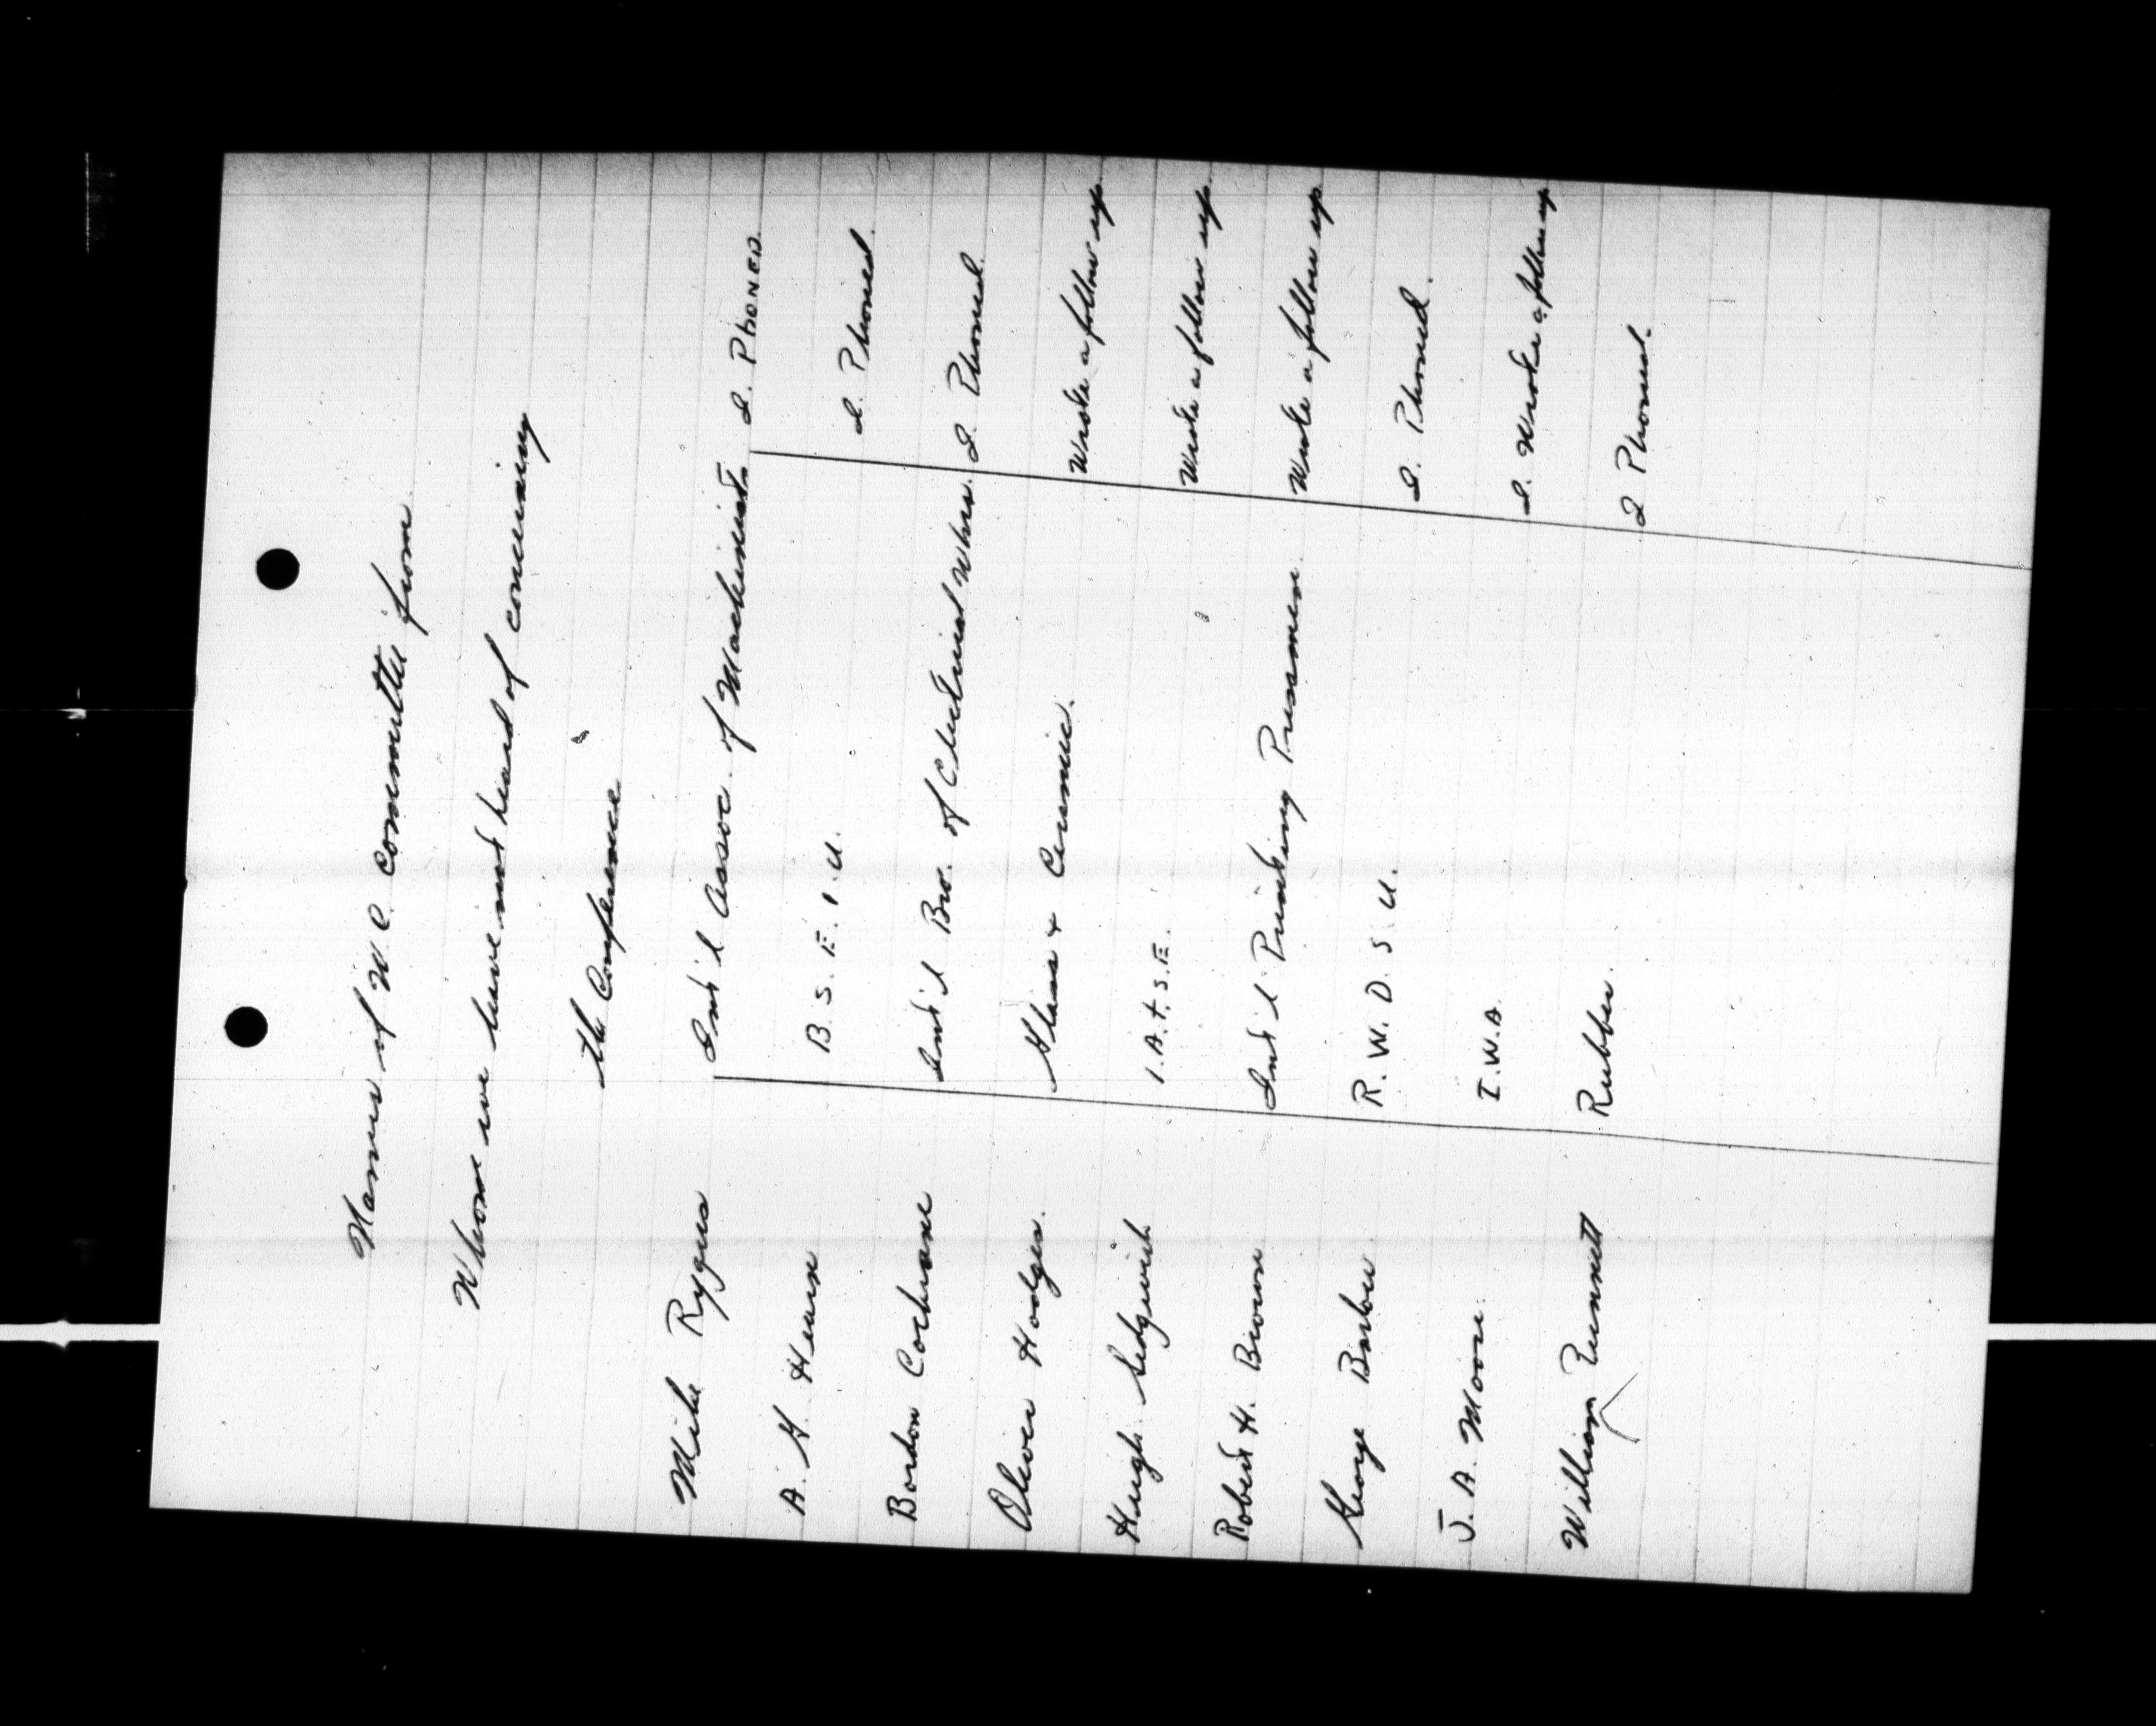 Names of W. C. Committee from
Whom we have not heard of concerning
the Conference
Mike Rygus Int'l Assoc. of Machinists I. PHONED.
A. G. Hearn B. S. E. I. U. I. Phoned.
Bordon Cochrane Int'l Bro of Electrical Wkrs. I. Phoned.
Oliver Hodges. Glass & Ceramic. Wrote a follow up.
Hugh Sedgwick I.A.T.S.E. Wrote a follow up.
Robert H. Brown Int'l Printing Pressmen. Wrote a follow up
George Barlow R. W. D. S. U I. Phoned.
J. A. Moore. I.W.A. I. Wrote a follow up
William Punnett Rubber. I Phoned.